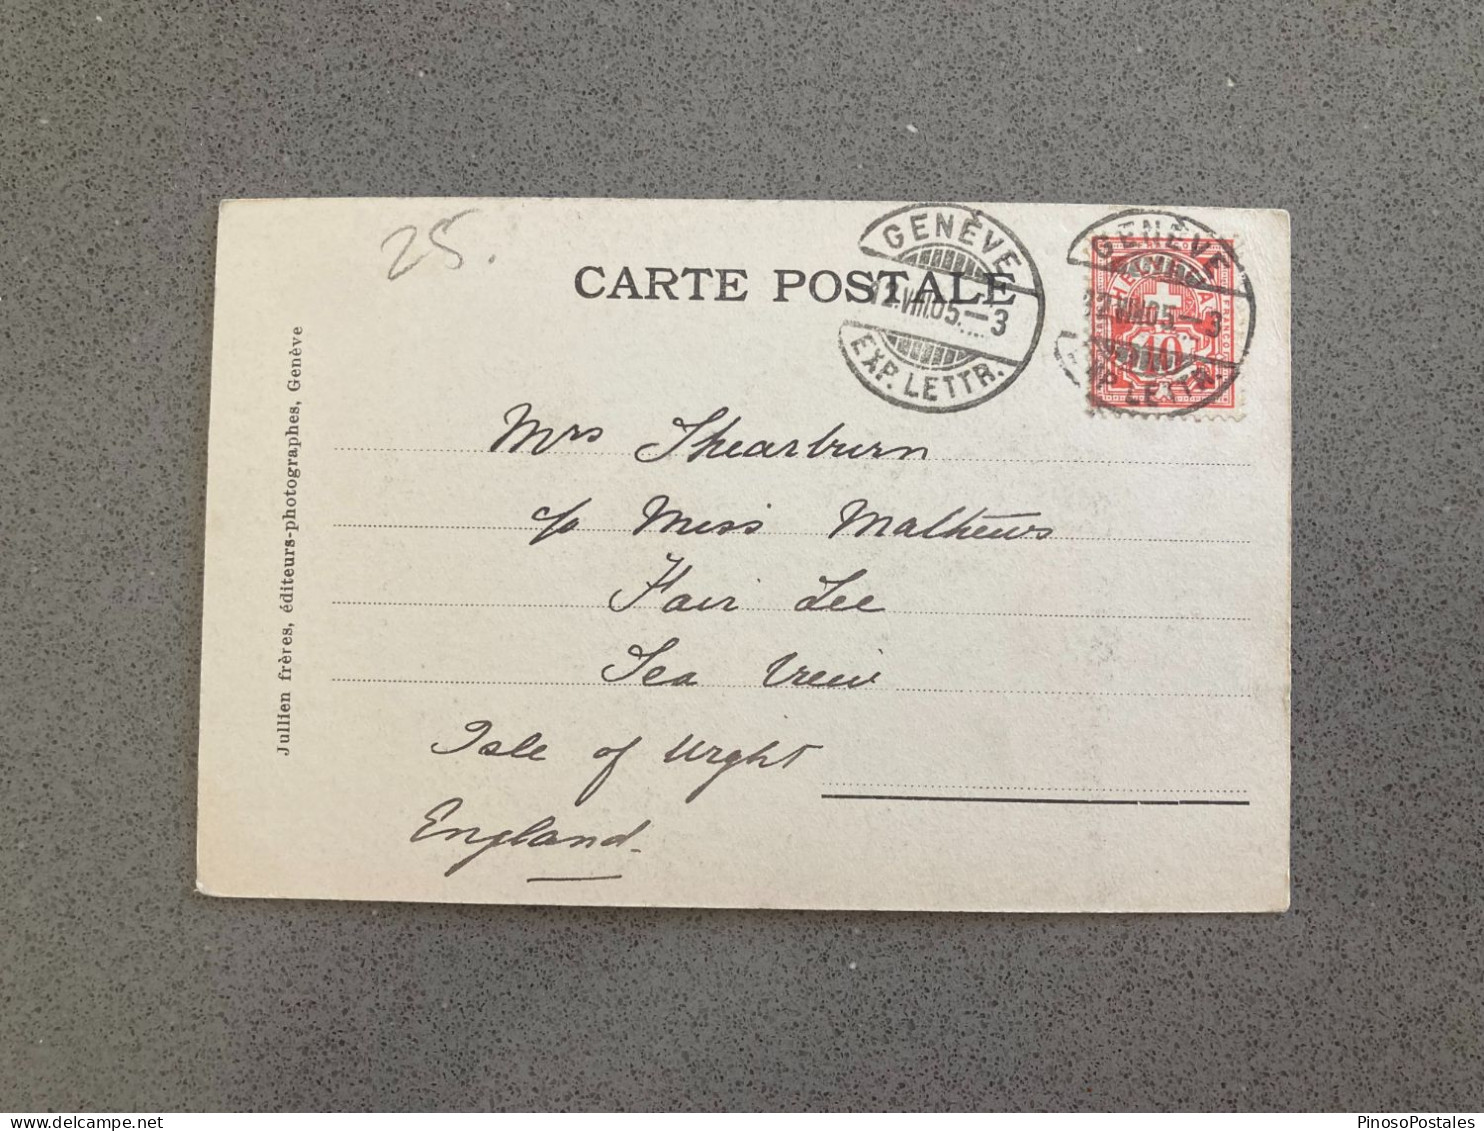 25.
CARTE POSTALE
GENÈVE
12.VIII.05.–3
EXP. LETTR.
GENÈVE
VIII.05–3
EXP. LETTR.
HELVETIA
FRANCO
10
Mrs Shearburn
c/o Miss Mathews
Fair Lee
Sea View
Isle of Wight
England.
Jullien frères, éditeurs-photographes, Genève
PinosoPostales